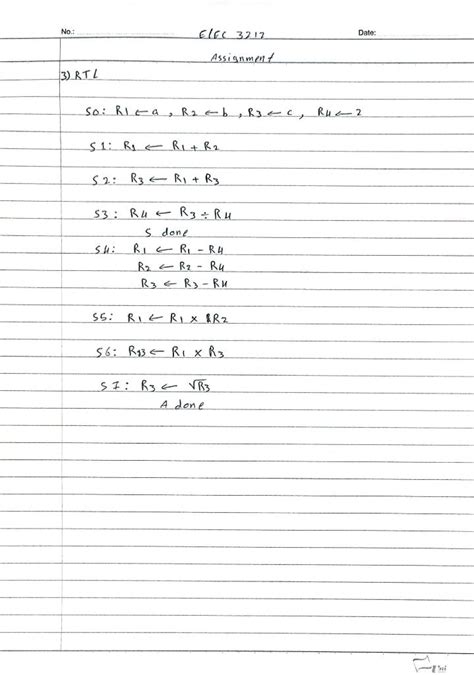 No.: ELEC 3217 Date:
Assignment
3) RTL
S0: R1 ← a , R2 ← b , R3 ← c , R4 ← 2
S1: R3 ← R1 + R2
S2: R3 ← R1 + R3
S3: R4 ← R3 ÷ R4
S done
S4: R1 ← R1 - R4
R2 ← R2 - R4
R3 ← R3 - R4
S5: R1 ← R1 × R2
S6: R3 ← R1 × R3
S7: R3 ← √R3
A done